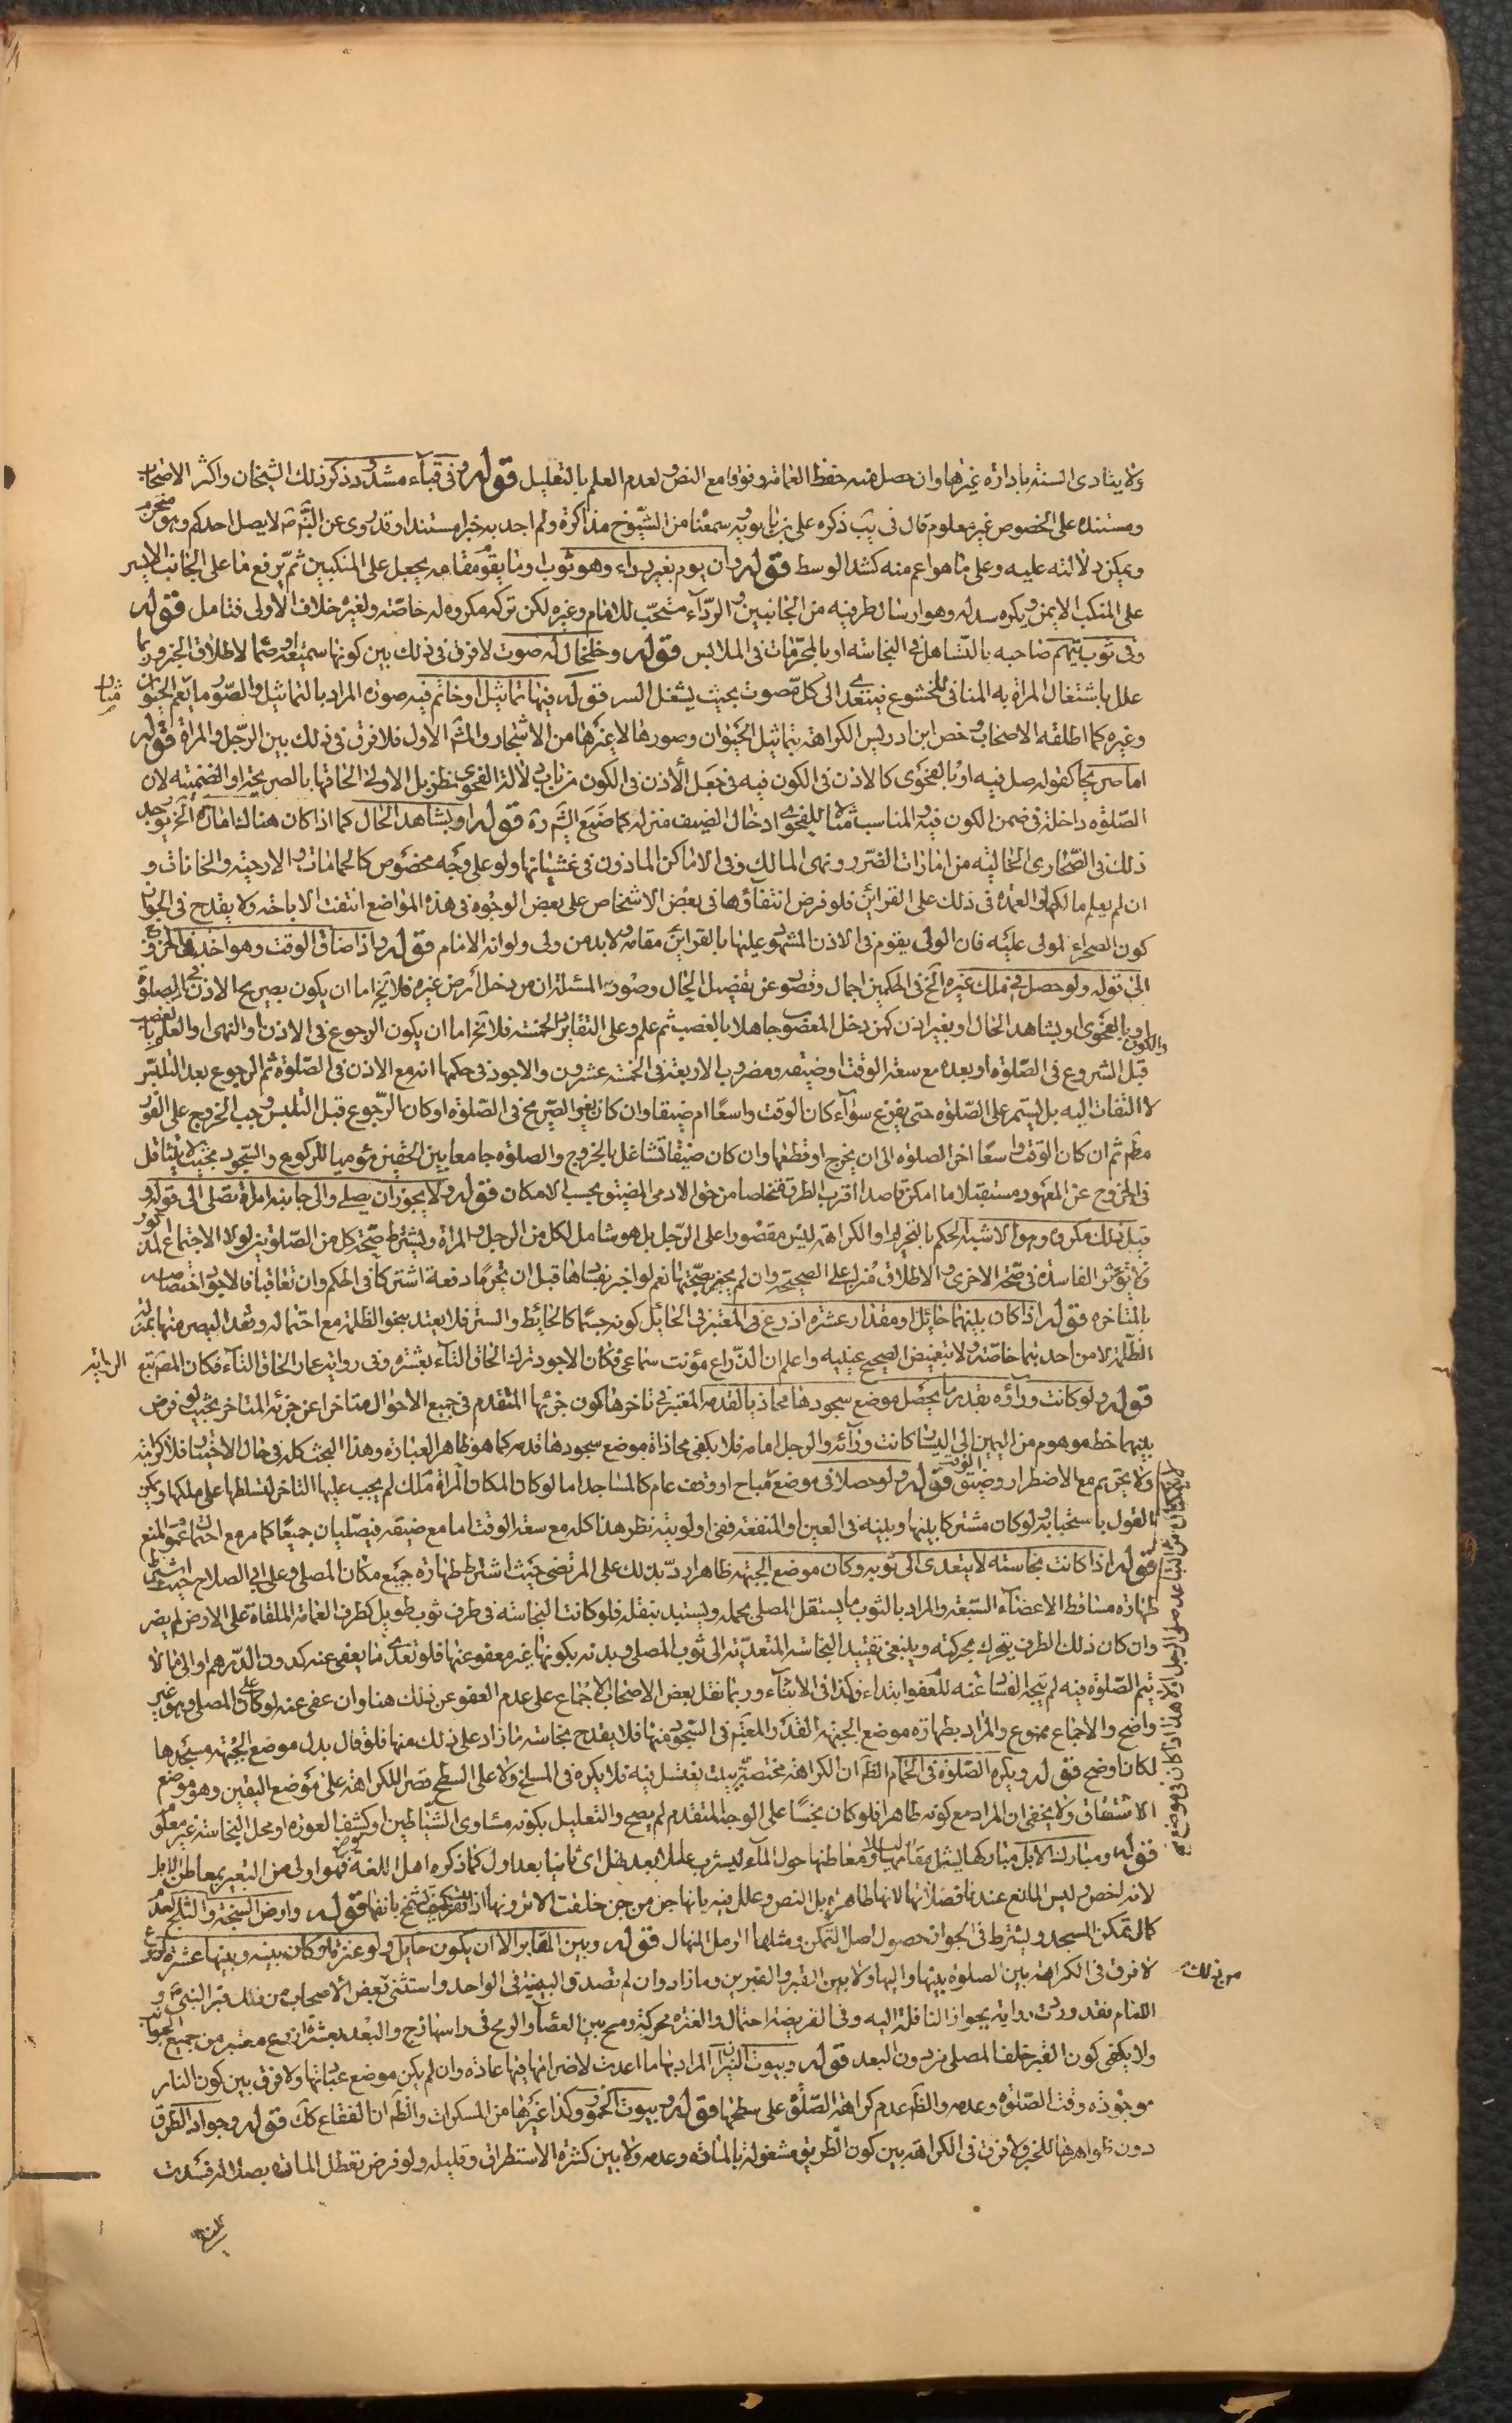 ولا يتادى السنة بادارة غيرها وان حصل منه حفظ العمامة وفوقا مع النص ولعدم العلم بالتعليل قوله وفى قباء مشدود ذكر ذلك الشيخان واكثر الاصحاب
ومستنده على الخصوص غير معلوم قال فى يب ذكره على بن بابويه سمعناه من الشيوخ مذاكرة ولم اجد به خبرا مسندا وقد روى عن النبى ص لا يصل احدكم وهو محزم
ويمكن دلالته عليه وعلى ما هو اعم منه كشد الوسط قوله وان يوم بغير رداء وهو ثوب او ما يقوم مقامه يجعل على المنكبين ثم يرفع ما على الجانب الايسر
على المنكب الايمن ويكره سدله وهو ارسال طرفيه من الجانبين والرداء مستحب للامام وغيره لكن تركه مكروه له خاصة ولغيره خلاف الاولى فتامل قوله
وفى ثوب يتهم صاحبه بالتساهل فى النجاسة او بالمحرمات فى الملابس قوله وخلخال له صوت لا فرق فى ذلك بين كونها سميعة او صماء لاطلاق الخبر وربما
علل باشتغال المراة به المنافى للخشوع فيتعدى الى كل مصوت بحيث يشغل السر قوله فيها تماثيل او خاتم فيه صورة المراد بالتماثيل والصور ما يعم الحيوان
وغيره كما اطلقه الاصحاب وخص ابن ادريس الكراهة بتماثيل الحيوان وصورها لا غيرها من الاشجار والمش الاول فلا فرق فى ذلك بين الرجل والمراة قوله
اما صريحا كقوله صل فيه او بالفحوى كالاذن فى الكون فيه فى جعل الاذن فى الكون من باب دلالة الفحوى نظر بل الاولى الحاقها بالصريحة او الضمنية لان
الصلوة داخلة فى ضمن الكون فيه والمناسب مثالا للفحوى ادخال الضيف منزله كما صنع الش ره قوله او بشاهد الحال كما اذا كان هناك امارة الخ يوجد
ذلك فى الصحارى الخالية من امارات الضرر ونهى المالك وفى الاماكن الماذون فى غشيانها ولو على وجه مخصوص كالحمامات والارحية والخانات و
ان لم يعلم مالكها والعمدة فى ذلك على القرائن فلو فرض انتفاؤها فى بعض الاشخاص على بعض الوجوه فى هذه المواضع انتفت الاباحة ولا يقدح فى الجواز
كون الصحراء لمولى عليه فان الولى يقوم فى الاذن المشهود عليها بالقراين مقامه ولا بد من ولى ولو انه الامام قوله واذا ضاق الوقت وهو اخذ فى الخروج
الخ قوله ولو حصل فى ملك غيره الخ فى الحكمين اجمال وقصور عن تفصيل الحال وصورة المسئلة ان من دخل ارض غيره فلا يخ اما ان يكون بصريح الاذن فى الصلوة
والكون او بالفحوى او بشاهد الحال او بغير اذن كمن دخل المغصوب جاهلا بالغصب ثم علم وعلى التقادير الخمسة فلا يخ اما ان يكون الرجوع فى الاذن او النهى او العلم بالغصب
قبل الشروع فى الصلوة او بعده مع سعة الوقت او ضيقه ومضروب الاربعة فى الخمسة عشرون والاجود فى حكمها انه مع الاذن فى الصلوة ثم الرجوع بعد التلبس
لا التفات اليه بل يستمر على الصلوة حتى يفرغ سواء كان الوقت واسعا ام ضيقا وان كان بغير الصريح فى الصلوة او كان الرجوع قبل التلبس وجب الخروج على الفور
مطم ثم ان كان الوقت واسعا اخر الصلوة الى ان يخرج او قطعها وان كان ضيقا تشاغل بالخروج والصلوة جامعا بين الحقين مؤميا للركوع والسجود بحيث لا يتثاقل
فى الخروج عن المعهود مستقبلا ما امكن قاصدا اقرب الطرق تخلصا من حق الادمى المضيق بحسب الامكان قوله ولا يجوز ان يصلى والى جانبه امراة تصلى الى قوله و
قيل ذلك مكروه وهو الاشبه الحكم بالتحريم او الكراهة ليس مقصورا على الرجل بل هو شامل لكل من الرجل والمراة ويشترط صحة كل من الصلوتين لولا الاجتماع المذكور
فلا تؤثر الفاسدة فى صحة الاخرى والاطلاق منزل على الصحيحة وان لم يخبر بصحتها نعم لو اخبر بفسادها قبل ان تحرما دفعة اشتركا فى الحكم وان تعاقبا فالاجود اختصاصه
بالمتاخرة قوله اذا كان بينهما حائل او مقدار عشرة اذرع المعتبر فى الحائل كونه جسما كالحائط والستر فلا يعتد بنحو الظلمة مع احتماله وفقد البصر منهما بمنزلة
الظلمة لا من احدهما خاصة ولا بتغميض الصحيح عينيه واعلم ان الذراع مؤنث سماعى فكان الاجود ترك الحاق التاء بعشرة وفى رواية عمار الحاق التاء فكان المصر تبع الرواية
قوله ولو كانت وراءه بقدر ما يحصل موضع سجودها محاذيا لقدمه المعتبر فى تاخرها كون جزئها المتقدم فى جميع الاحوال متاخرا عن جزئه المتاخر بحيث لو فرض
بينهما خط موهوم من اليمين الى اليسار كانت ورائه والرجل امامه فلا يكفى محاذاة موضع سجودها قدمه كما هو ظاهر العبارة وهذا البحث كله فى حال الاختيار فلا كراهة
ولا تحريم مع الاضطرار وضيق الوقت قوله ولو حصلا فى موضع مباح او وقف عام كالمساجد اما لو كان المكان للمراة ملك لم يجب عليها التاخر لتسلطها على ملكها ويمكن
القول باستحبابه ولو كان مشتركا بينها وبينه فى العين او المنفعة ففى اولويته نظر هذا كله مع سعة الوقت اما مع ضيقه فيصليان جميعا كما مر مع احتمال عموم المنع
قوله اذا كانت نجاسته لا يتعدى الى ثوبه وكان موضع الجبهة طاهرا رد بذلك على المرتضى حيث اشترط طهارة جميع مكان المصلى وعلى ابى الصلاح حيث اشترط
طهارة مساقط الاعضاء السبعة والمراد بالثوب ما يستقل المصلى بحمله ويستبد بنقله فلو كانت النجاسة فى طرف ثوب طويل كطرف العمامة الملقاة على الارض لم يضر
وان كان ذلك الطرف يتحرك بحركته وينبغى تقييد النجاسة المتعدية الى ثوب المصلى وبدنه بكونها غير معفو عنها فلو تعدى ما يعفى عنه كدون الدرهم او الى ما لا
يتم الصلوة فيه لم يتجه الفساد عنه للعفو ابتداء وكذا فى الاثناء وربما نقل بعض الاصحاب الاجماع على عدم العفو عن ذلك هنا وان عفى عنه لو كان على المصلى وهو غير
واضح والاجماع ممنوع والمراد بطهارة موضع الجبهة القدر المعتبر فى السجود منها فلا يقدح نجاسة ما زاد على ذلك منها فلو قال بدل موضع الجبهة مسجدها
لكان اوضح قوله ويكره الصلوة فى الحمام الظ ان الكراهة مختصة ببيت يغتسل فيه فلا يكره فى المسلخ ولا على السطح قصرا للكراهة على موضع اليقين وهو موضع
الاشتقاق ولا يخفى ان المراد مع كونه طاهرا فلو كان نجسا على الوجه المتقدم لم يصح والتعليل بكونه مساوى الشياطين او كشف العورة او محل النجاسة غير معلوم
قوله ومبارك الابل مباركها ليشمل مقامها ليلا ومعاطنها حول الماء ليشرب عللا بعد نهل اى ثانيا بعد اول كما ذكره اهل اللغة فهو اولى من التعبير بمعاطن الابل
لانه اخص وليس المانع عندنا فضلاتها لانها طاهرة بل النص وعلل فيه بانها جن من جن خلقت الا ترونها اذا نفرت كيف تشمخ بانفها قوله وارض السبخة والثلج لعدم
كمال تمكن المسجد ويشترط فى الجواز حصول اصل التمكن ومثلهما الرمل المنهال قوله وبين المقابر الا ان يكون حايل ولو عنزة او كان بينه وبينها عشرة اذرع
لا فرق فى الكراهة بين الصلوة بينها واليها ولا بين القبر والقبرين وما زاد وان لم تصدق البينية فى الواحد واستثنى بعض الاصحاب من ذلك قبر النبى ص و
الامام فقد وردت رواية بجواز النافلة اليه وفى الفريضة احتمال والعنزة محركة رميح بين العصا والرمح فى راسها زج والبعد بعشرة اذرع معتبر من جميع الجوانب
ولا يكفى كون القبر خلف المصلى من دون البعد قوله وبيوت النيران المراد بها ما اعدت لاضرامها فيها عادة وان لم يكن موضع عبادتها ولا فرق بين كون النار
موجودة وقت الصلوة وعدمه والظ عدم كراهة الصلوة على سطحها قوله وبيوت الخمور وكذا غيرها من المسكرات والظ ان الفقاع كك قوله وجواد الطرق
دون ظواهرها للخبر ولا فرق فى الكراهة بين كون الطريق مشغولة بالمارة وعدمه ولا بين كثرة الاستطراق وقليله ولو فرض تعطل المارة بصلاته فسدت